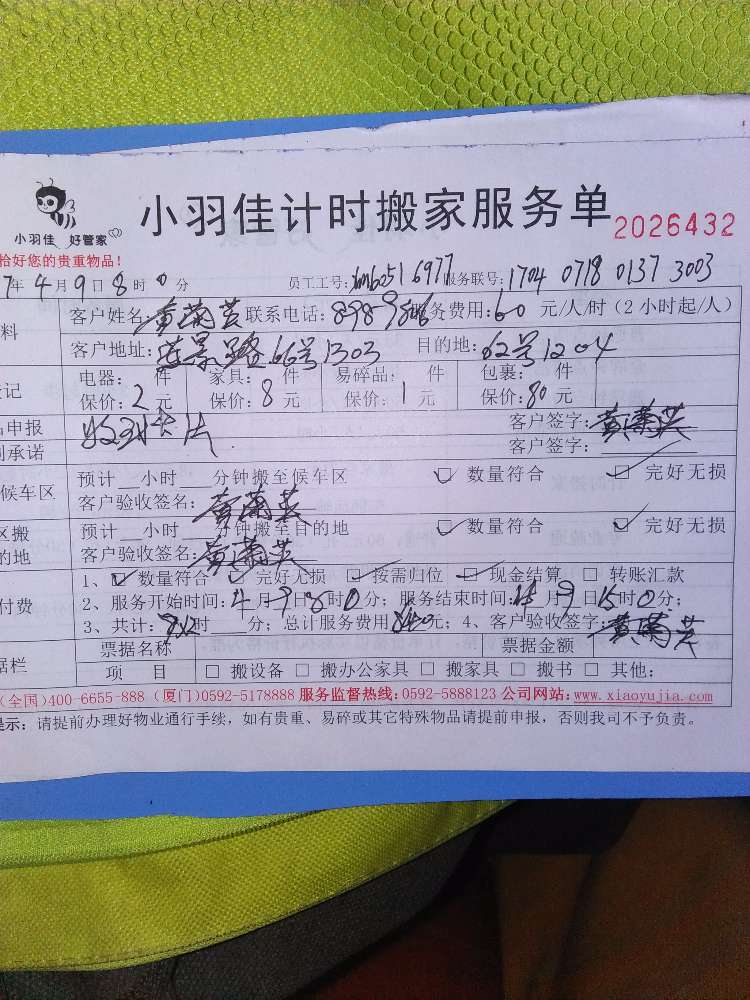 小羽佳 好管家
小羽佳计时搬家服务单 2026432
恰好您的贵重物品!
7年4月9日8时0分 员工工号:xm62516977 服务联号:1704 0718 0137 3003
客户姓名: 联系电话: 服务费用:60 元/人/时(2小时起/人)
客户地址: 路66号1303 目的地:62号1204
电器: 件 家具: 件 易碎品: 件 包裹: 件
保价:2元 保价:8元 保价:1元 保价:80元
申报 客户签字:
承诺 客户签字:
候车区 预计 小时 分钟搬至候车区 数量符合 完好无损
客户验收签名:
区搬 预计 小时 分钟搬至目的地 数量符合 完好无损
的地 客户验收签名:
1、数量符合 完好无损 按需归位 现金结算 □ 转账汇款
付费 2、服务开始时间:4月9日8时0分;服务结束时间:4月9日15时0分;
3、共计: 时 分;总计服务费用840元;4、客户验收签字:
票据名称 票据金额
据栏 项 目 □ 搬设备 □ 搬办公家具 □ 搬家具 □ 搬书 □ 其他:
(全国)400-6655-888 (厦门)0592-5178888 服务监督热线:0592-5888123 公司网站:www.xiaoyujia.com
提示:请提前办理好物业通行手续,如有贵重、易碎或其它特殊物品请提前申报,否则我司不予负责。